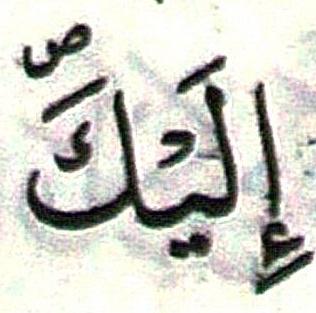 إِلَيْكَ ص